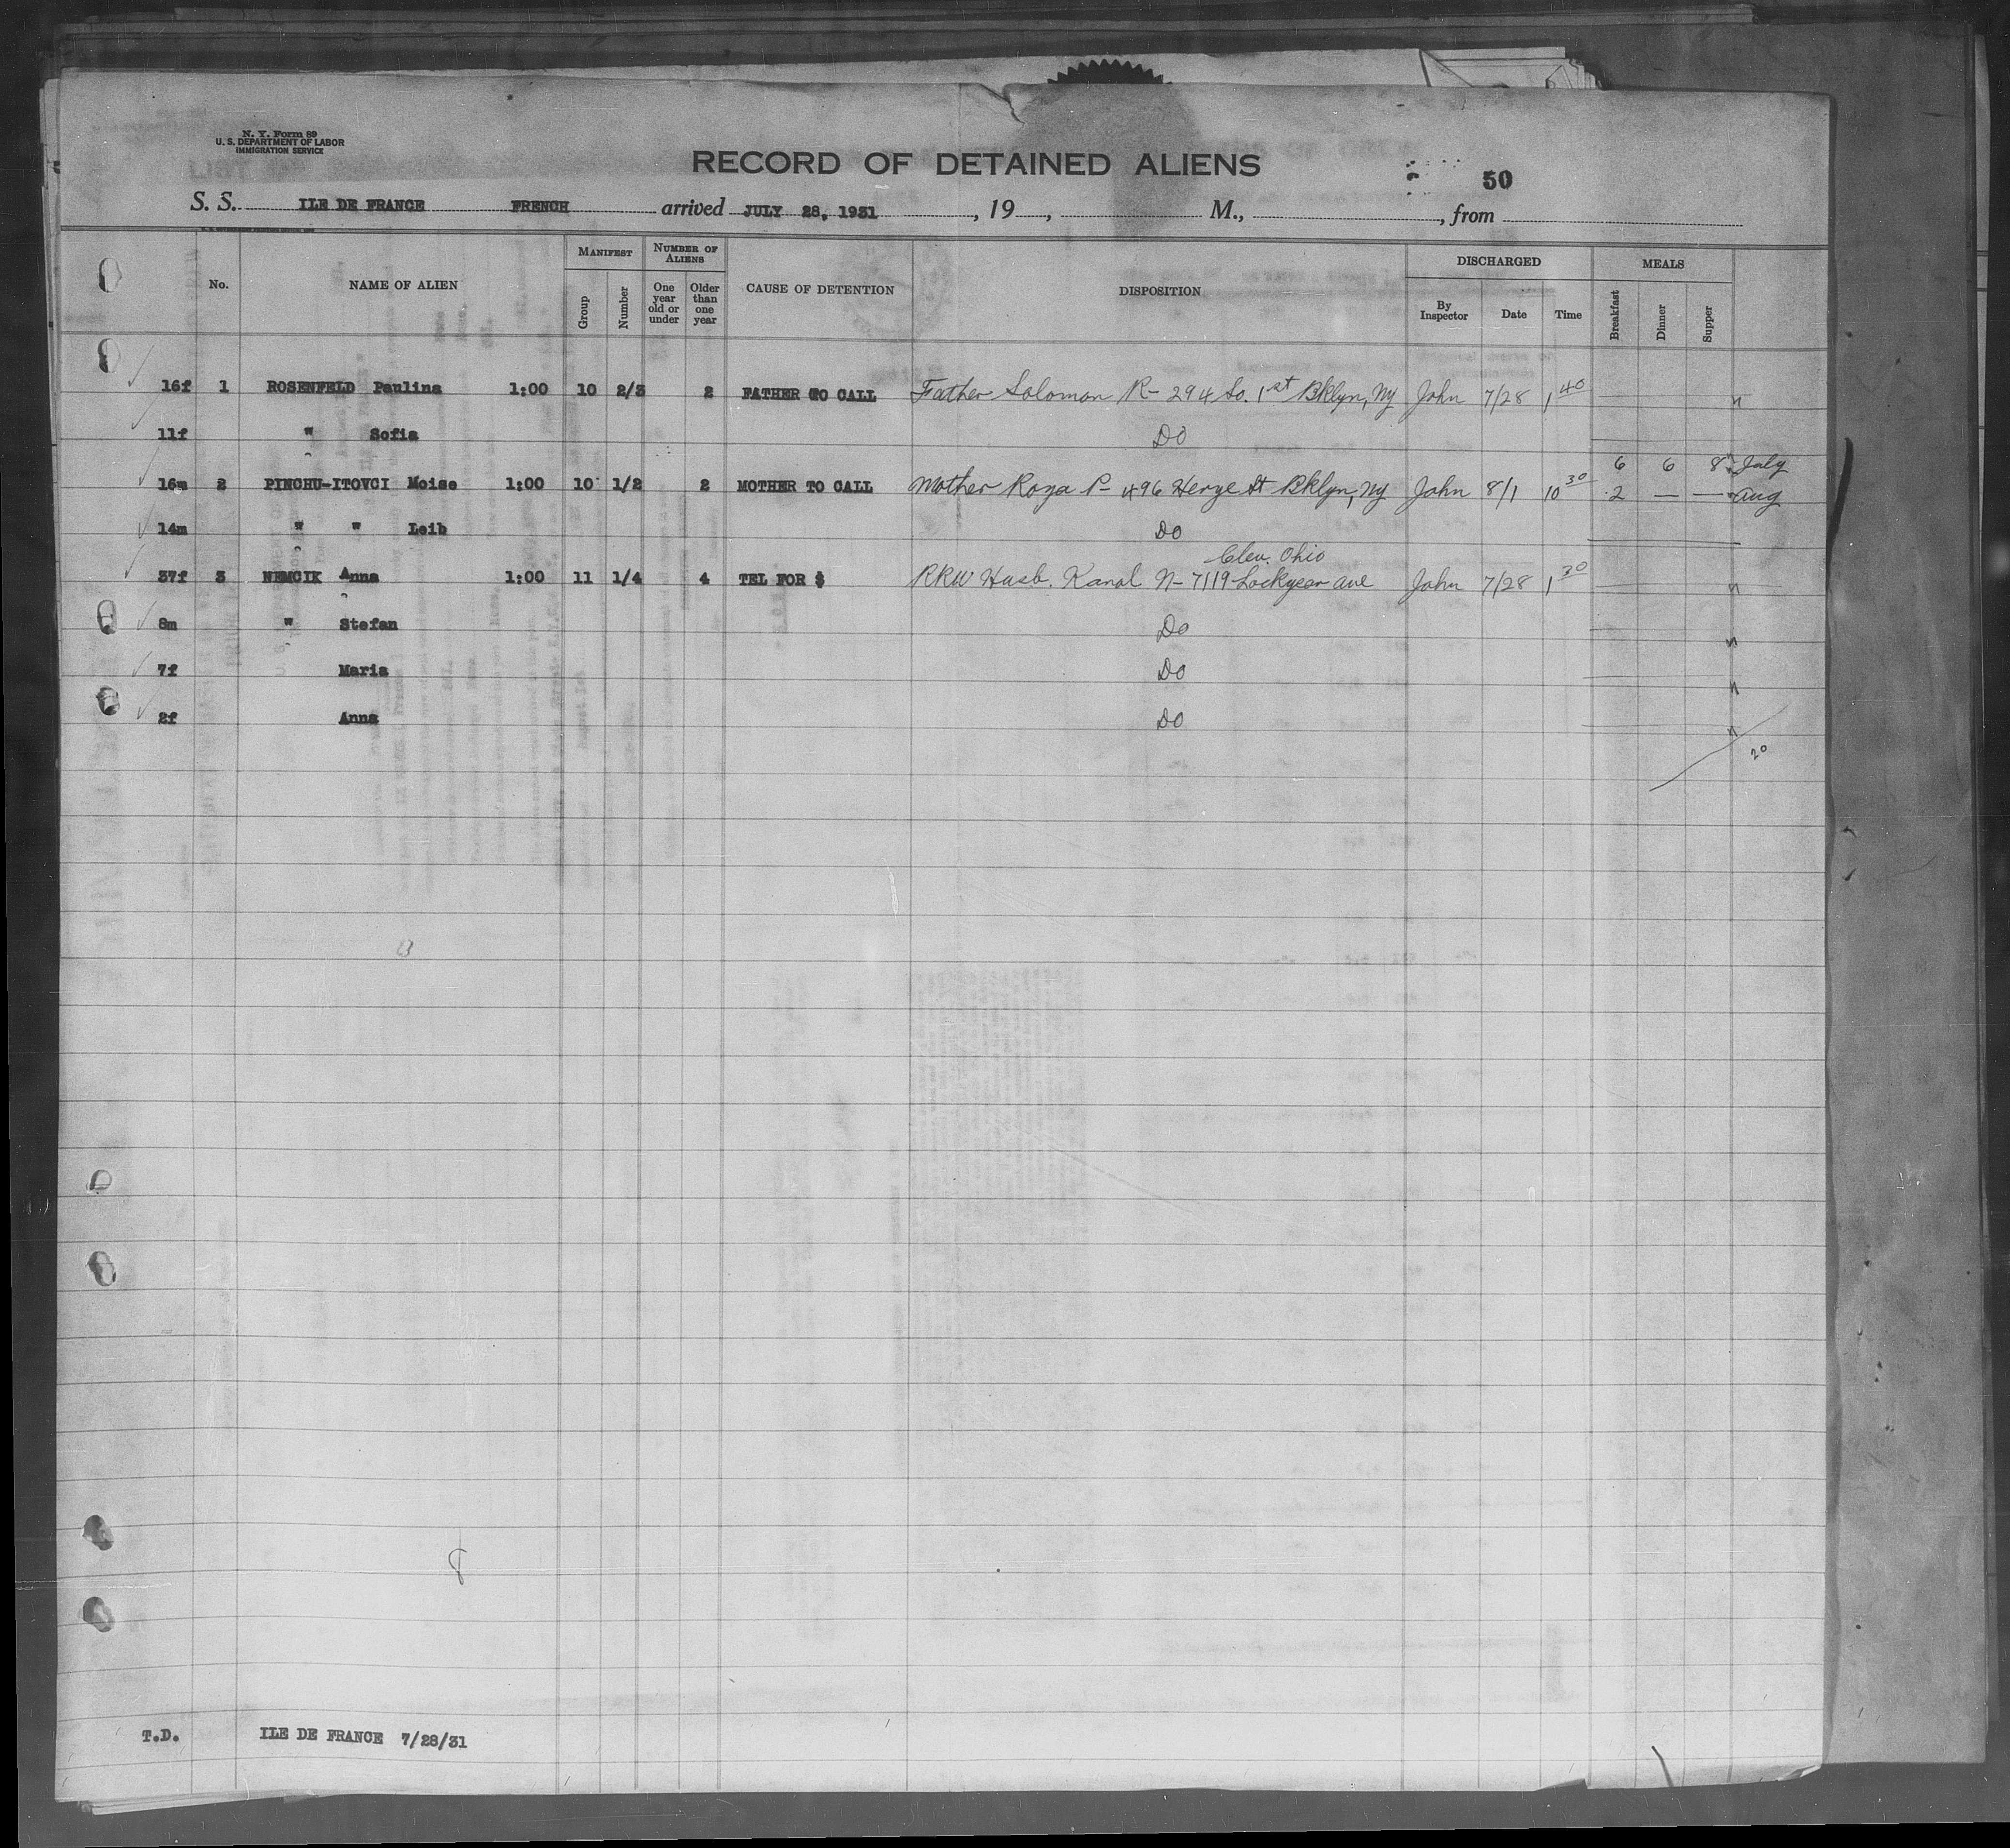 N. Y. Form 89
U. S. DEPARTMENT OF LABOR
IMMIGRATION SERVICE
RECORD OF DETAINED ALIENS
50
S. S. ILE DE FRANCE FRENCH arrived JULY 28, 1931, 19 , M., , from
No. NAME OF ALIEN MANIFEST Group Number NUMBER OF ALIENS One year old or under Older than one year CAUSE OF DETENTION DISPOSITION DISCHARGED By Inspector Date Time MEALS Breakfast Dinner Supper
16f 1 ROSENFELD Paulina 1:00 10 2/3 2 FATHER TO CALL Father Solomon R- 294 So. 1st Bklyn, NY John 7/28 1 40 n
11f " Sofia Do
6 6 8 July
16m 2 PINCHU-ITOVCI Moise 1:00 10 1/2 2 MOTHER TO CALL Mother Roza P- 496 St Bklyn, NY John 8/1 10 30 2 — — Aug
14m " " Leib Do
Clev. Ohio
37f 3 NEMCIK Anna 1:00 11 1/4 4 TEL FOR $ RRW Husb. Karol N- 7119 Lockyear Ave John 7/28 1 30 n
8m " Stefan Do n
7f Maria Do n
2f Anna Do n
20
8
T.D. ILE DE FRANCE 7/28/31